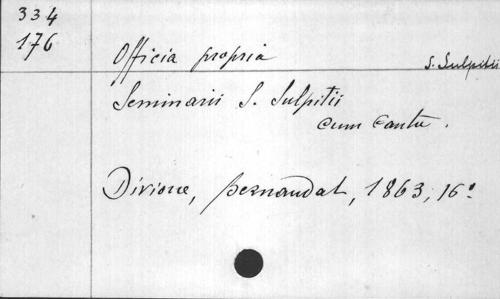 334
176
Officia propria
S. Sulpitii
Seminarii S. Sulpitii
cum cantu.
Divione, Pernaudat, 1863, 16°.